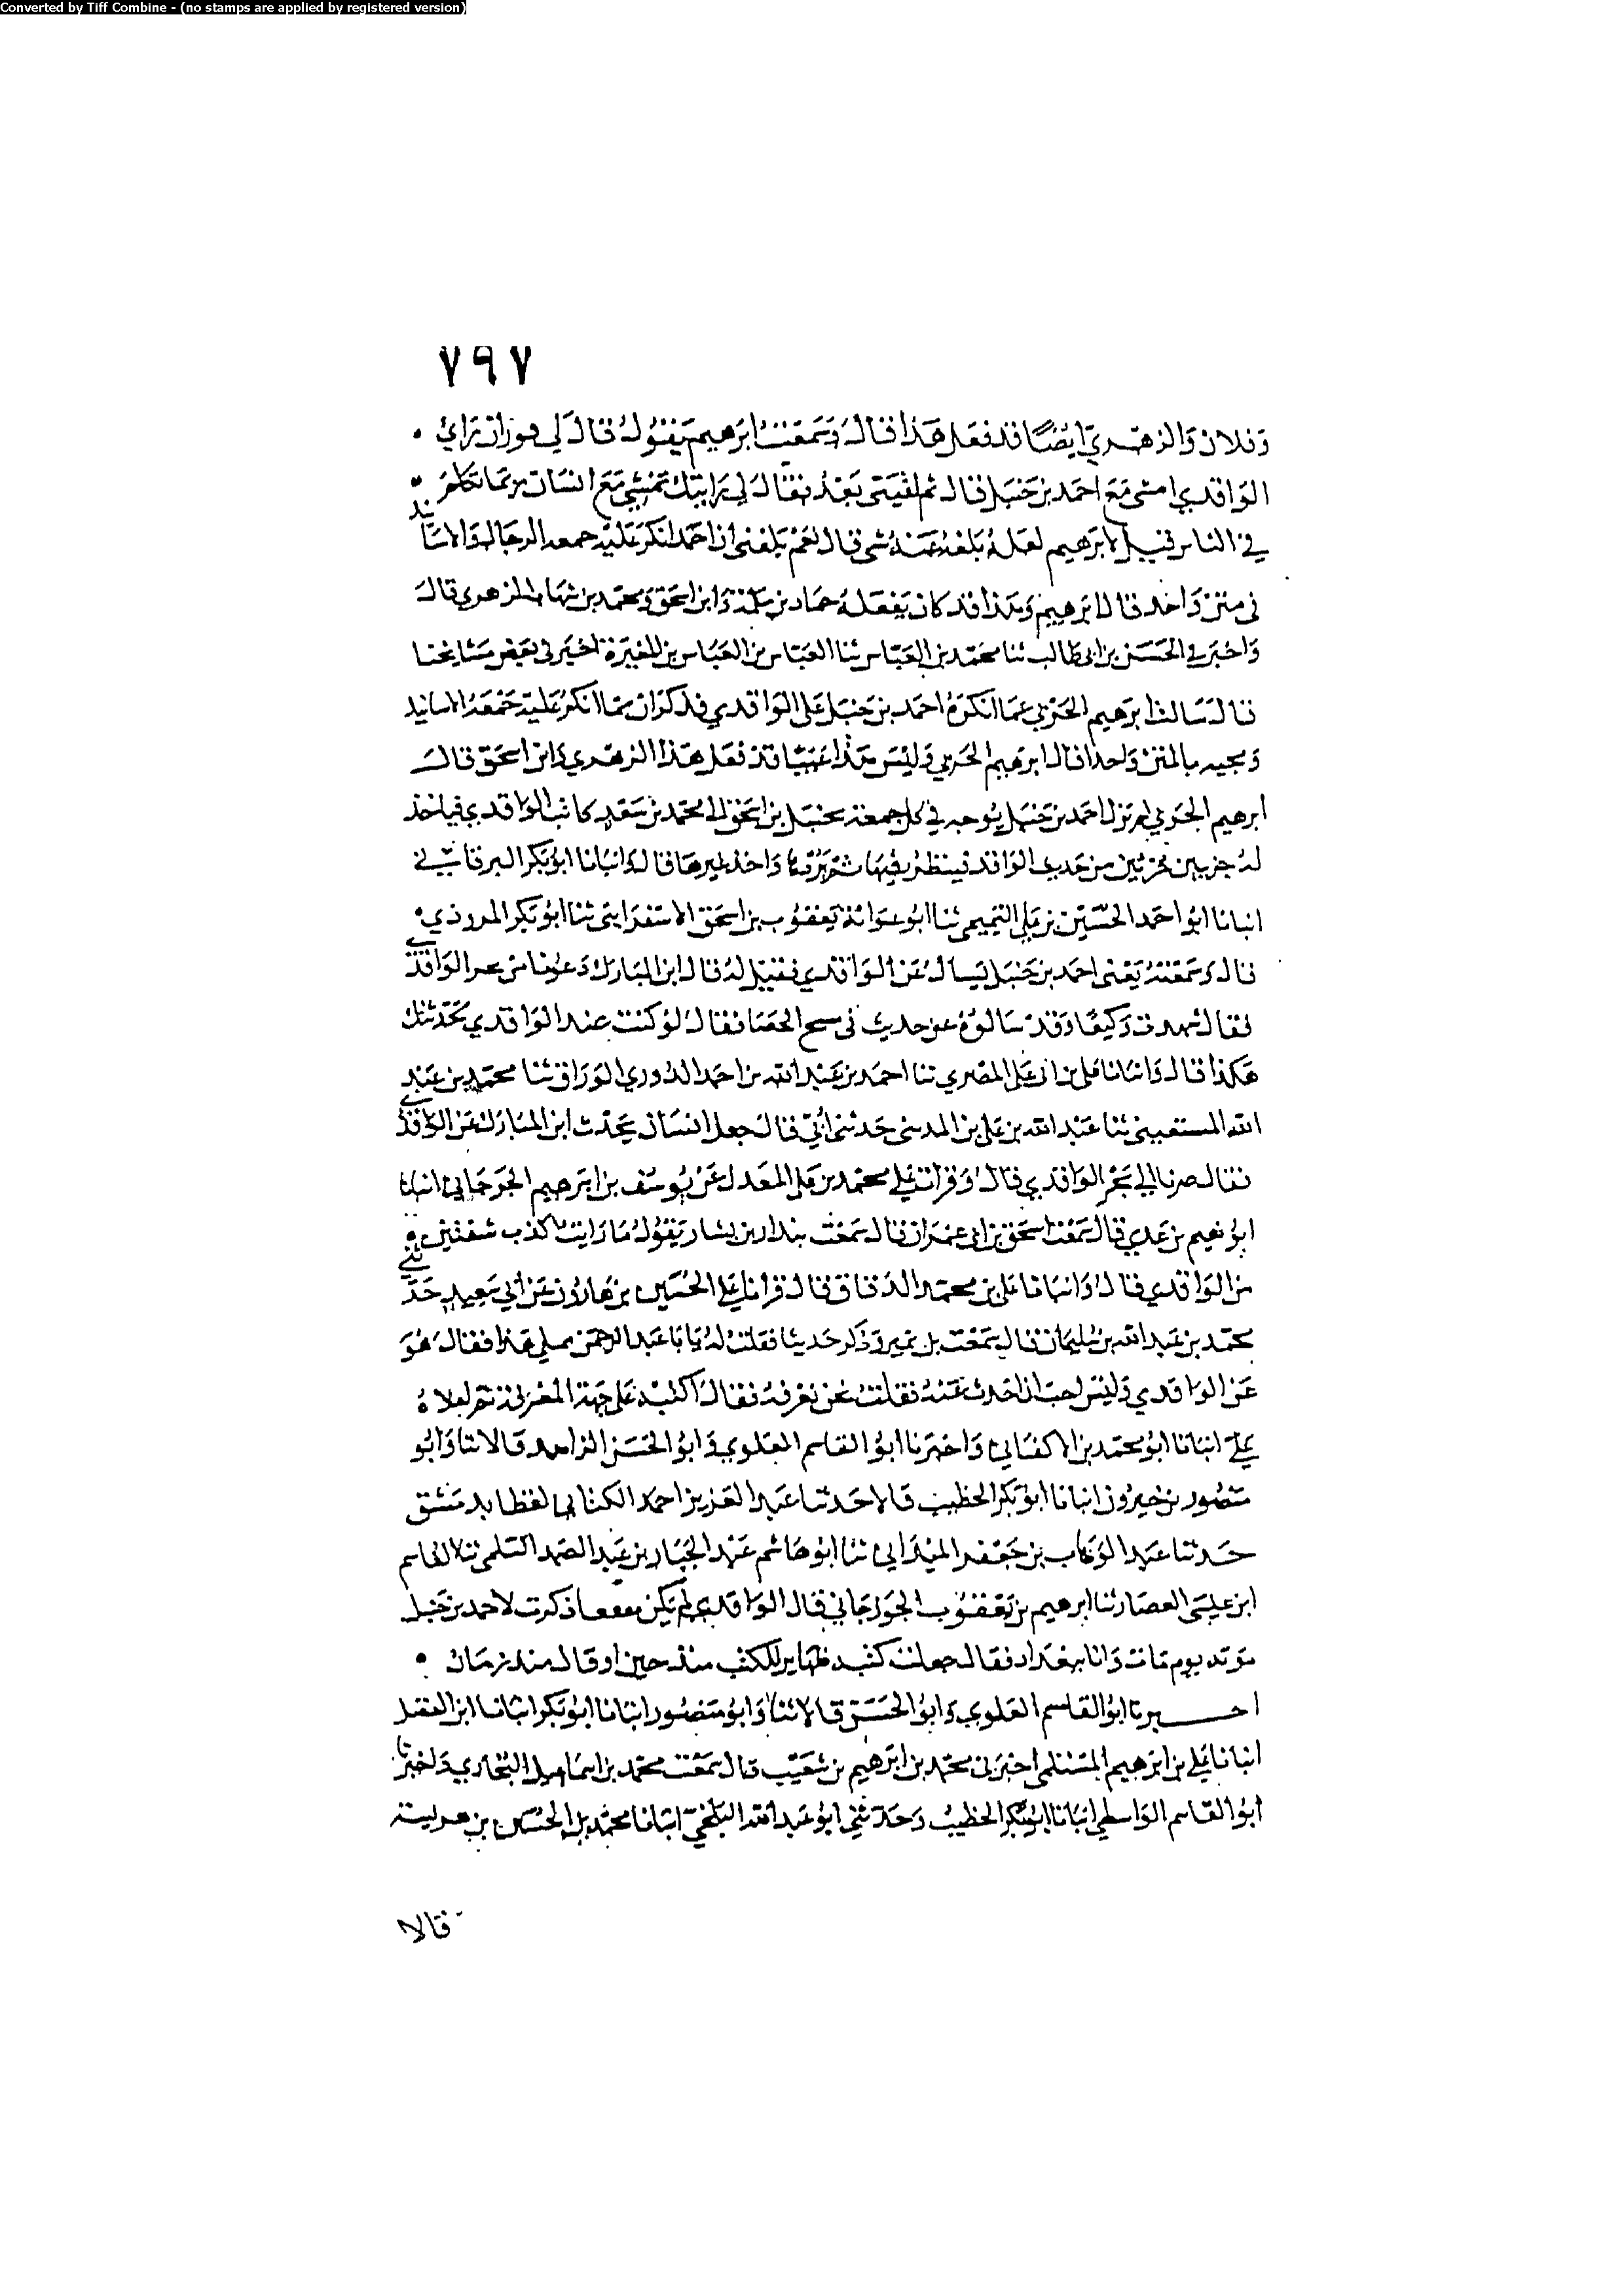 Converted by Tiff Combine - (no stamps are applied by registered version)
٧٩٧
وفلان والزهري ايضا قد فعل هذا قال وسمعت ابرهيم يقول قال لي فوران راني
الواقدي امشي مع احمد بن حنبل قال ثم لقيني بعد فقال لي رايتك تمشي مع انسان ربما تكلم
في الناس قيل لابرهيم لعله بلغه عنه شي قال نعم بلغني ان احمد انكر عليه جمعه الرجال والاسانيد
في متن واحد قال ابرهيم وهذا قد كان يفعله حماد بن سلمة وابن اسحق ومحمد بن شهاب الزهري قال
واخبرني الحسن بن ابي طالب ثنا محمد بن العباس ثنا العباس بن العباس بن المغيرة اخبرني بعض مشايخنا
قال سالت ابرهيم الحربي عما انكره احمد بن حنبل على الواقدي فذكر ان مما انكر عليه جمعه الاسانيد
ومجيه بالمتن واحدا قال ابرهيم الحربي وليس هذا عيبا قد فعل هذا الزهري وابن اسحق قال
ابرهيم الحربي لم يزل احمد بن حنبل يوجه في كل جمعة بحنبل بن اسحق الى محمد بن سعد كاتب الواقدي فياخذ
له جزيين جزيين من حديث الواقدي فينظر فيها ثم يردها واخذ غيرها قال وانبانا ابو بكر البرقاني
انبانا ابو احمد الحسين بن علي التميمي ثنا ابو عوانة يعقوب بن اسحق الاسفرايني ثنا ابو بكر المروذي
قال وسمعته يعني احمد بن حنبل يسال عن الواقدي فقيل له قال ابن المبارك دعونا من بحر الواقدي
فقال شهدت وكيعا وقد سالوه عن حديث في مسح الحصا فقال لو كنت عند الواقدي يحدثك
هكذا قال وانبانا علي بن ابي علي المصري ثنا احمد بن عبد الله بن احمد الدوري الوراق ثنا محمد بن عبد
الله المستعيني ثنا عبد الله بن علي بن المديني حدثني ابي قال جعل انسان يحدث ابن المبارك عن الواقدي
فقال صرنا الى بحر الواقدي قال وقرات على محمد بن علي المعدل عن يوسف بن ابرهيم الجرجاني انبانا
ابو نعيم بن عدي قال سمعت اسحق بن ابي عمران قال سمعت بندار بن بشار يقول ما رايت اكذب شفتين
من الواقدي قال وانبانا علي بن محمد الدقاق قال قرانا على الحسين بن هارون عن ابي سعيد حدثني
محمد بن عبد الله بن سليمان قال سمعت بن نمير وذكر حديثا فقلت له يا ابا عبد الرحمن يملي هذا فقال هو
عن الواقدي وليس احب ان احدث عنه فقلت نحن نعرفه فقال اكتبه على جهة المعرفة ثم املاه
علي انبانا ابو محمد بن الاكفاني واخبرنا ابو القاسم العلوي وابو الحسن الزاهد قالا ثنا وابو
منصور بن خيرون انبانا ابو بكر الخطيب قالا حدثنا عبد العزيز احمد الكتاني لفظا بدمشق
حدثنا عبد الوهاب بن جعفر الميداني ثنا ابو هاشم عبد الجبار بن عبد الصمد السلمي ثنا القاسم
ابن عيسى العصار ثنا ابرهيم بن يعقوب الجوزجاني قال الواقدي لم يكن مقنعا ذكرت لاحمد بن حنبل
موته يوم مات وانا ببغداد فقال جعلت كتبه ظهاير للكتب منذ حين او قال منذ زمان
اخبرنا ابو القاسم العلوي وابو الحسن قالا ثنا وابو منصور انبانا ابو بكر انبانا ابن الفضل
انبانا علي بن ابرهيم المستملي اخبرني محمد بن ابرهيم بن شعيب قال سمعت محمد بن اسماعيل البخاري واخبرنا
ابو القاسم الواسطي انبانا ابو بكر الخطيب وحدثني ابو عبد الله البلخي انبانا محمد بن الحسين بن هريسة
قالا